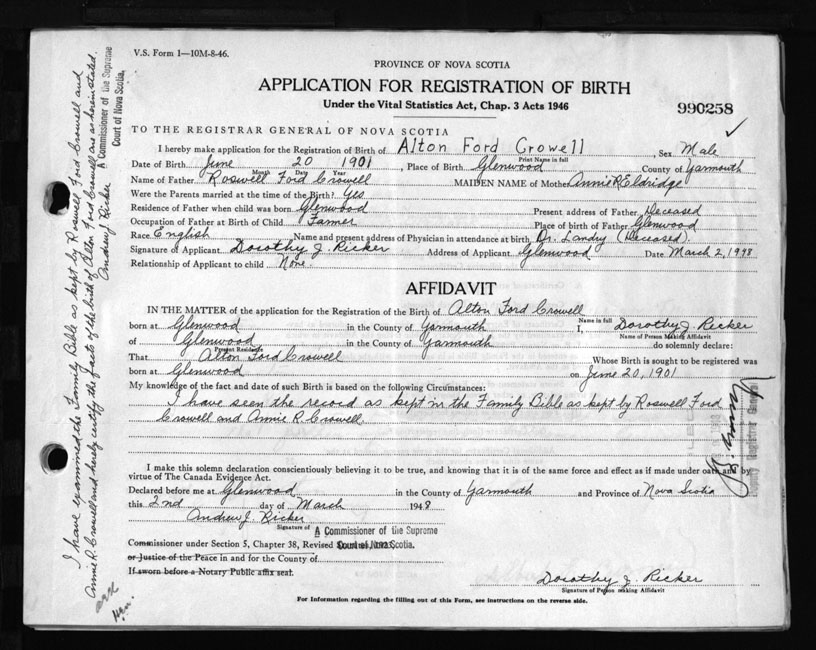 V.S. Form 1—10M-8-46.
PROVINCE OF NOVA SCOTIA
APPLICATION FOR REGISTRATION OF BIRTH
Under the Vital Statistics Act, Chap. 3 Acts 1946
990258
TO THE REGISTRAR GENERAL OF NOVA SCOTIA
I hereby make application for the Registration of Birth of Alton Ford Crowell, Sex Male
Print Name in full
Date of Birth June 20 1901, Place of Birth Glenwood County of Yarmouth
Month Date Year
Name of Father Roswell Ford Crowell MAIDEN NAME of Mother Annie R Eldridge
Were the Parents married at the time of the Birth? Yes
Residence of Father when child was born Glenwood Present address of Father Deceased
Occupation of Father at Birth of Child Farmer Place of birth of Father Glenwood
Race English Name and present address of Physician in attendance at birth Dr. Landry (Deceased).
Signature of Applicant Dorothy J. Ricker Address of Applicant Glenwood Date March 2, 1948
Relationship of Applicant to child None.
AFFIDAVIT
IN THE MATTER of the application for the Registration of the Birth of Alton Ford Crowell
Name in full
born at Glenwood in the County of Yarmouth I, Dorothy J. Ricker
Name of Person Making Affidavit
of Glenwood in the County of Yarmouth do solemnly declare:
Present Residence
That Alton Ford Crowell Whose Birth is sought to be registered was
born at Glenwood on June 20, 1901
My knowledge of the fact and date of such Birth is based on the following Circumstances:
I have seen the record as kept in the Family Bible as kept by Roswell Ford
Crowell and Annie R. Crowell.
I make this solemn declaration conscientiously believing it to be true, and knowing that it is of the same force and effect as if made under oath and by
virtue of The Canada Evidence Act.
Declared before me at Glenwood in the County of Yarmouth and Province of Nova Scotia
this 2nd day of March 1948
Andrew J. Ricker
Signature of A Commissioner of the Supreme
Court of Nova Scotia.
Commissioner under Section 5, Chapter 38, Revised
or Justice of the Peace in and for the County of
If sworn before a Notary Public affix seal.
Dorothy J. Ricker
Signature of Person making Affidavit
For Information regarding the filling out of this Form, see instructions on the reverse side.
I have examined the Family Bible as kept by Roswell Ford Crowell and
Annie R. Crowell and hereby certify the facts of the birth of Alton Ford Crowell are as herein stated.
Andrew J. Ricker
A Commissioner of the Supreme
Court of Nova Scotia,
Deputy Registrar General